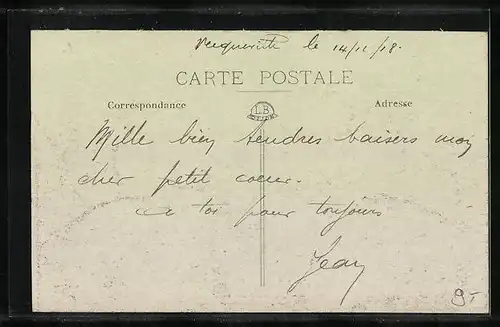 le 14/11/18.
CARTE POSTALE
Correspondance
LB
Adresse
Mille bien tendres baisers mon
cher petit coeur.
a toi pour toujours
Jean
9-